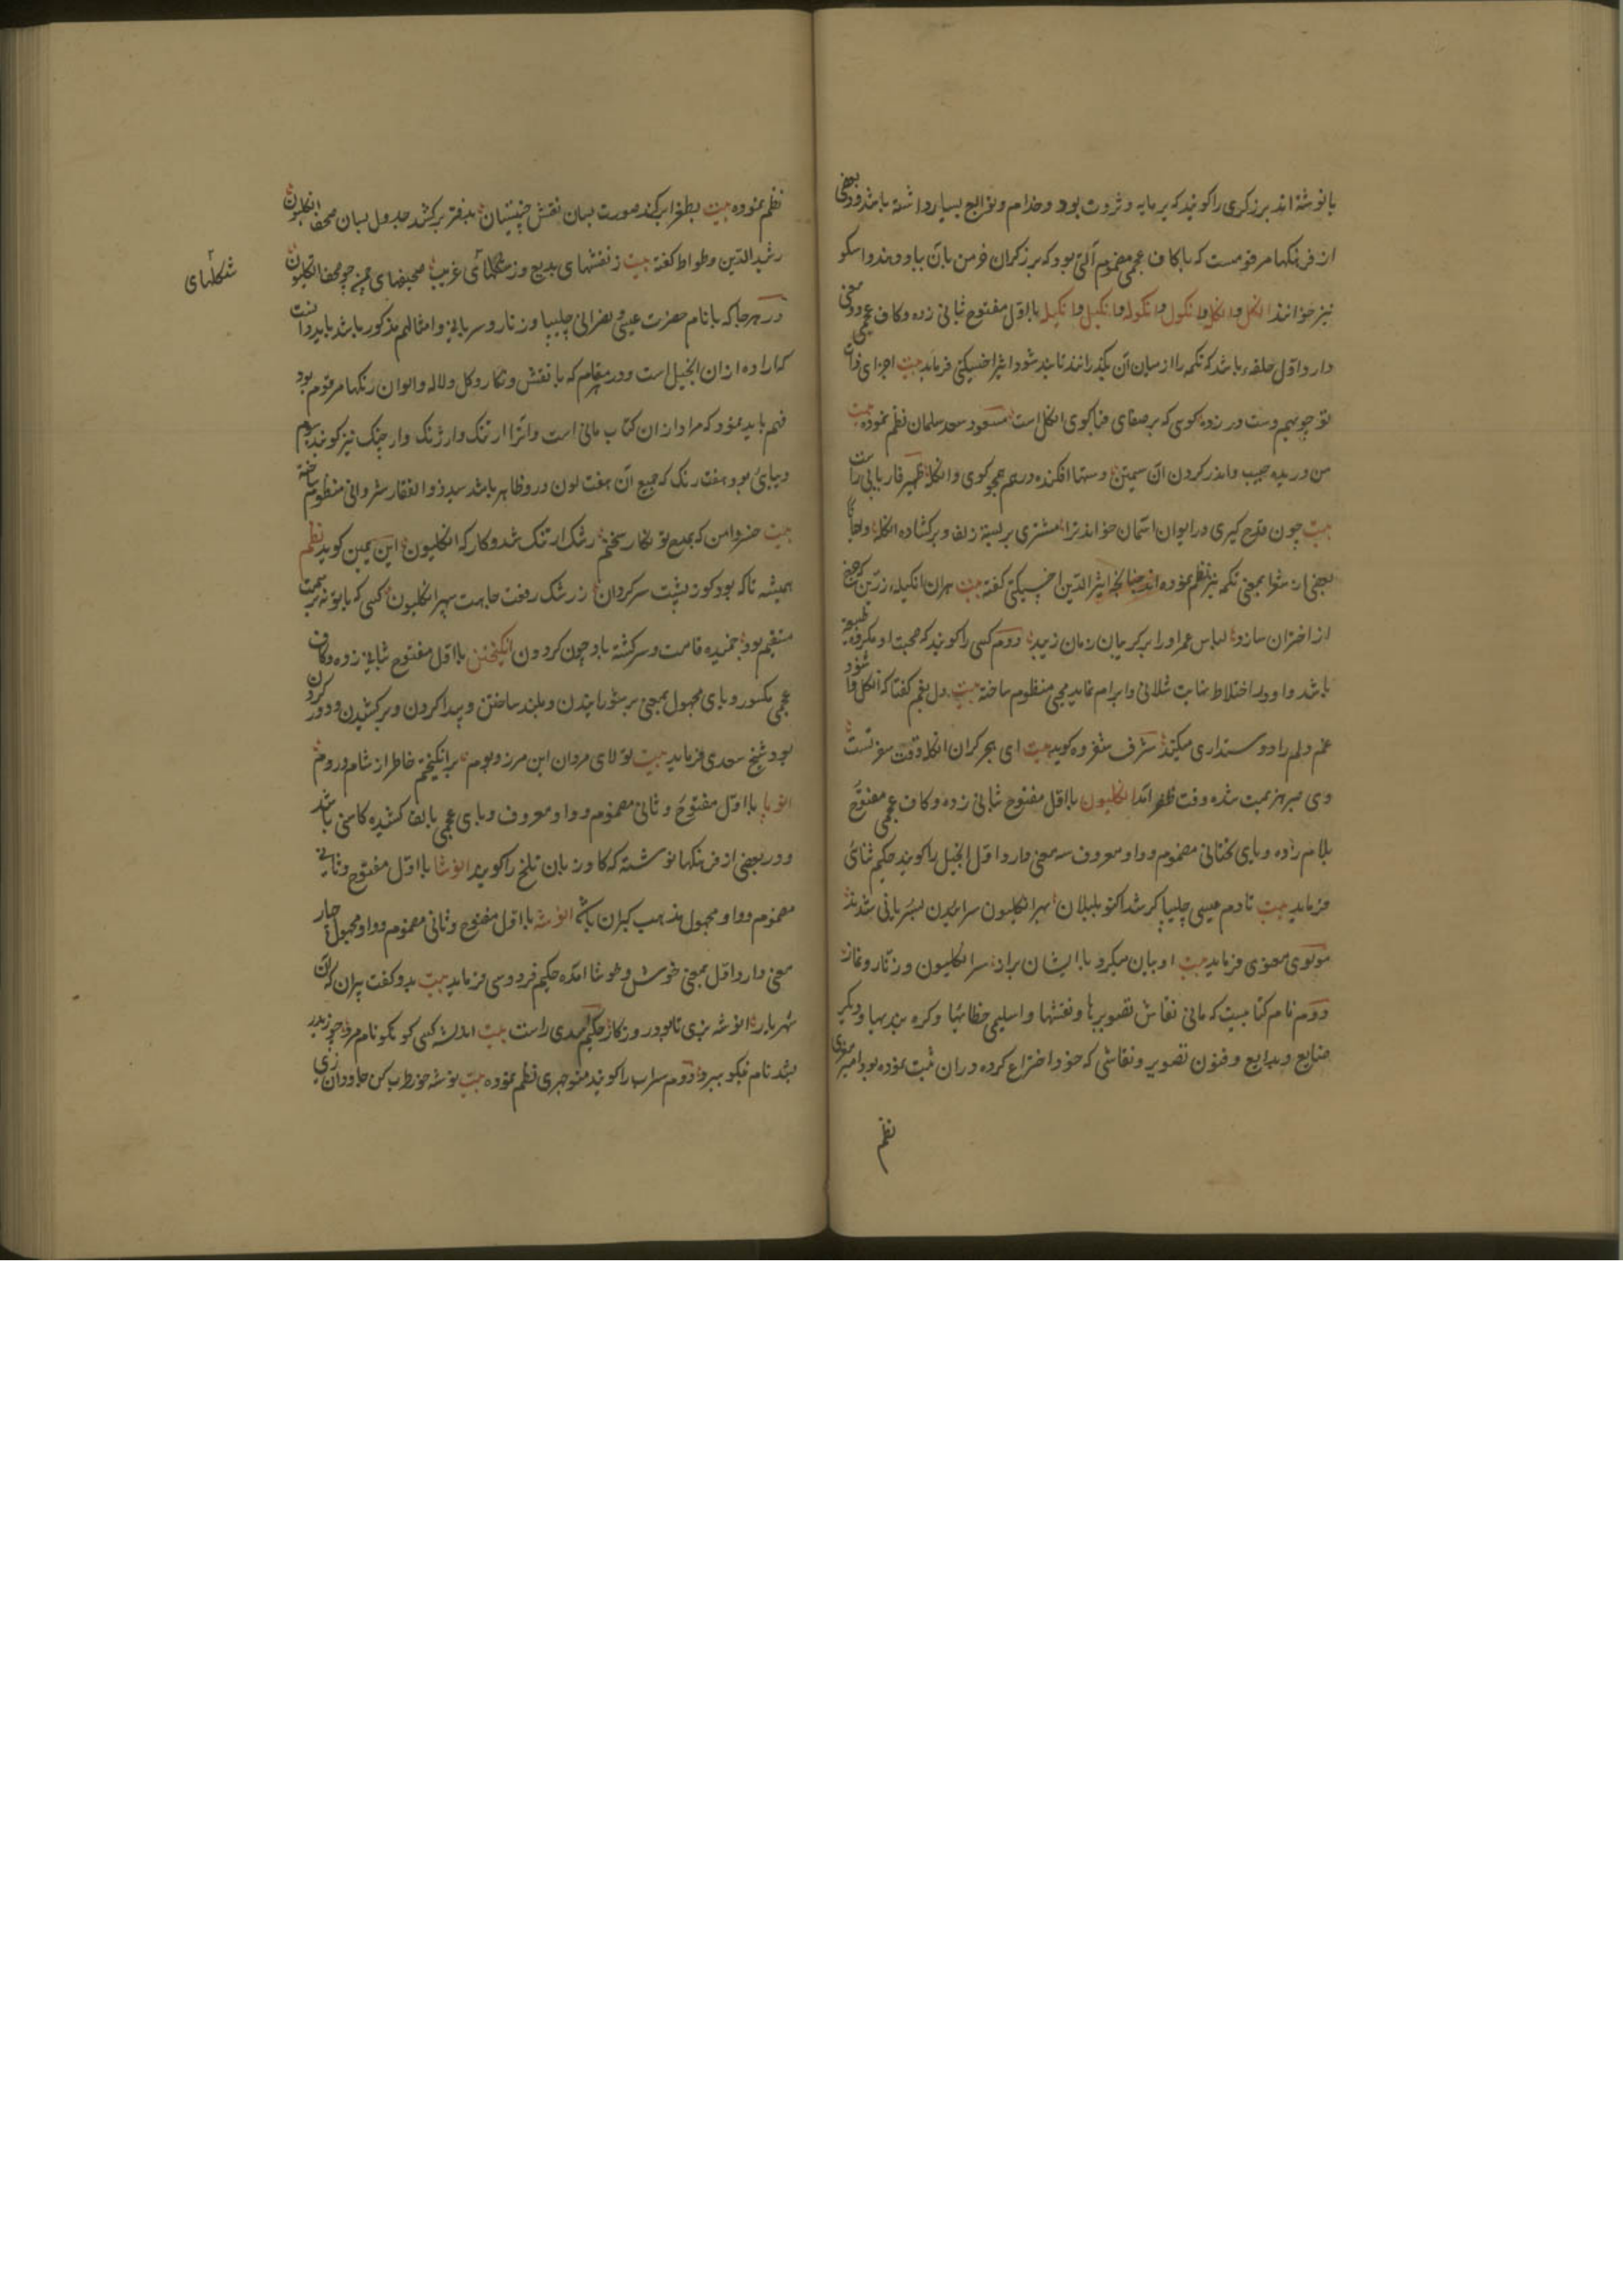 یا نوشته اند برزکری را کویند که پر مایه و ثروت بود و خدام و توابع بسیار داشته باشد و در بعضی
از فرنکها مرقومست که با کاف عجمی مضموم آلتی بود که برزکران خرمن بان بباد دهند و اسکو
نیز خوانند انکل و انکله و انکول و انکوله و انکیل و انکیله با اول مفتوح ثانی زده و کاف عجمی دو معنی
دارد اول حلقه باشد که تکمه را از میان آن بگذرانند تا بند شود اثیر اخسیکتی فرماید بیت اجزای ذات
تو چو بهم دست در زده کوی که بر صفای قبا کوی انکل است مسعود سعد سلمان نظم نموده بیت
من دریده جیب و اندر کردن آن سیمتن دستها افکنده در هم همچو کوی و انکله ظهیر فاریابی راست
بیت چون قدح کیری در ایوان آسمان خواند ترا مشتری بر بسته زلف و برکشاده انکله و احیانا
بعضی از شعرا بمعنی تکمه نیز نظم نموده اند چنانچه اثیر الدین اخسیکتی کفته بیت بهر ان انکیله زرین که صبح
از اختران سازد لباس عمر او را بر کریبان زمان زیبد دوم کسی را کویند که صحبت او مکروه طبع
باشد و او در اختلاط نهایت شلائی و ابرام نماید مجی منظوم ساخته بیت دل بغم کفتا که انکل وا شود
غم دلم را دوستداری میکند شرف شفروه کوید بیت ای بحر کران انکله وقت سفر تست
وی صبر هزیمت شده وقت ظفر آمد انکلیون با اول مفتوح ثانی زده و کاف عجمی مفتوح
بلام زده و یای تحتانی مضموم و واو معروف سه معنی دارد اول انجیل را کویند حکیم ثنائی
فرماید بیت تا دم عیسی چلیپا کر شد اکنو بلبلان بهر انکلیون سراییدن بسریانی شدند
مولوی معنوی فرماید بیت او بیان میکرد با ایشان براز سر انکلیون و زنار و نماز
دوم نام کتابیست که مانی نقاش تصویرها و نقشها و اسلیمی خطائیها و کره بندیها و دیکر
صنایع و بدایع و فنون تصویر و نقاشی که خود اختراع کرده در ان ثبت نموده بود امیر معزی
نظم
نظم نموده بیت بطغرا برکند صورت بسان نقش چینیان بدفتر برکشد جدول بسان مصحف انکلیون
رشید الدین وطواط کفته بیت ز نقشهای بدیع وز شکلهای غریب صحیفهای چمن چو مصحف انکلیون
شکلهای
در هر جا که با نام حضرت عیسی و نصرانی چلیپا و زنار و سریانی و امثالهم مذکور باشد باید دانست
که اراده از ان انجیل است و در هر مقام که با نقش و نکار و کل و لاله و الوان رنکها مرقوم بود
فهم باید نمود که مراد از ان کتاب مانی است و انرا ارتنک و ارژنک و ارجنک نیز کویند سیوم
دیبائی بود هفت رنک که جمیع آن هفت لون در و ظاهر باشد سید ذو الفقار شروانی منظوم ساخته
بیت خسروا من که بمدح تو نکار سخنم رشک ارتنک شد و کار که انکلیون ابن یمین کوید نظم
همیشه تا که بود کوز پشت سرکردان ز رشک رفعت جاهت سپهر انکلیون کسی که با تو نه بر سمت
مستقیم بود خمیده قامت و سرکشته باد چون کردون انکیختن با اول مفتوح ثانی زده و کاف
عجمی مکسور و یای مجهول بمعنی بر شورانیدن و بلند ساختن و پیدا کردن و برکشیدن و دور کردن
بود شیخ سعدی فرماید بیت تولای مردان این مرز و بوم برانکیختم خاطر از شام و روم
انوپا با اول مفتوح و ثانی مضموم و واو معروف و بای عجمی بالف کشیده کاسنی باشد
و در بعضی از فرنکها نوشته که کاو زبان تلخ را کویند انوشا با اول مفتوح و ثانی
مضموم و واو مجهول مذهب کبران باشد انوشه با اول مفتوح و ثانی مضموم و واو مجهول چهار
معنی دارد اول بمعنی خوش و خوشا آمده حکیم فردوسی فرماید بیت بدو کفت پیران که ای
شهریار انوشه بزی تا بود روزکار حکیم اسدی راست بیت انوشه کسی کو نکو نام مرد چو ایدر
بشد نام نیکو ببرد دوم شراب را کویند منوچهری نظم نموده بیت نوشه خور طرب کن جاودان زی